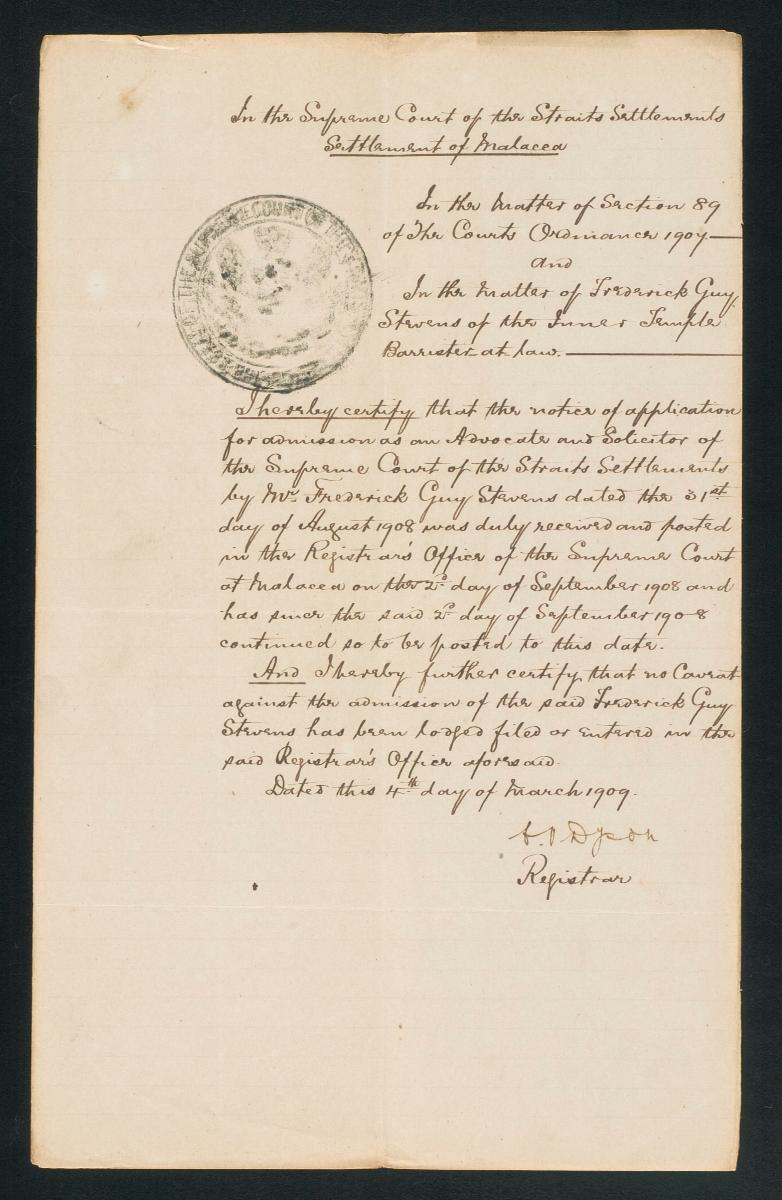 In the Supreme Court of the Straits Settlements
Settlement of Malacca
In the Matter of Section 89
of The Courts Ordinance 1907
and
In the Matter of Frederick Guy
Stevens of the Inner Temple
Barrister at law.
I hereby certify that the notice of application
for admission as an Advocate and Solicitor of
the Supreme Court of the Straits Settlements
by Mr. Frederick Guy Stevens dated the 31st
day of August 1908 was duly received and posted
in the Registrar's Office of the Supreme Court
at Malacca on the 2d day of September 1908 and
has since the said 2d day of September 1908
continued so to be posted to this date.
And I hereby further certify that no Caveat
against the admission of the said Frederick Guy
Stevens has been lodged filed or entered in the
said Registrar's Office aforesaid.
Dated this 4th day of March 1909.
Dyson
Registrar
THE SUPREME COURT OF THE